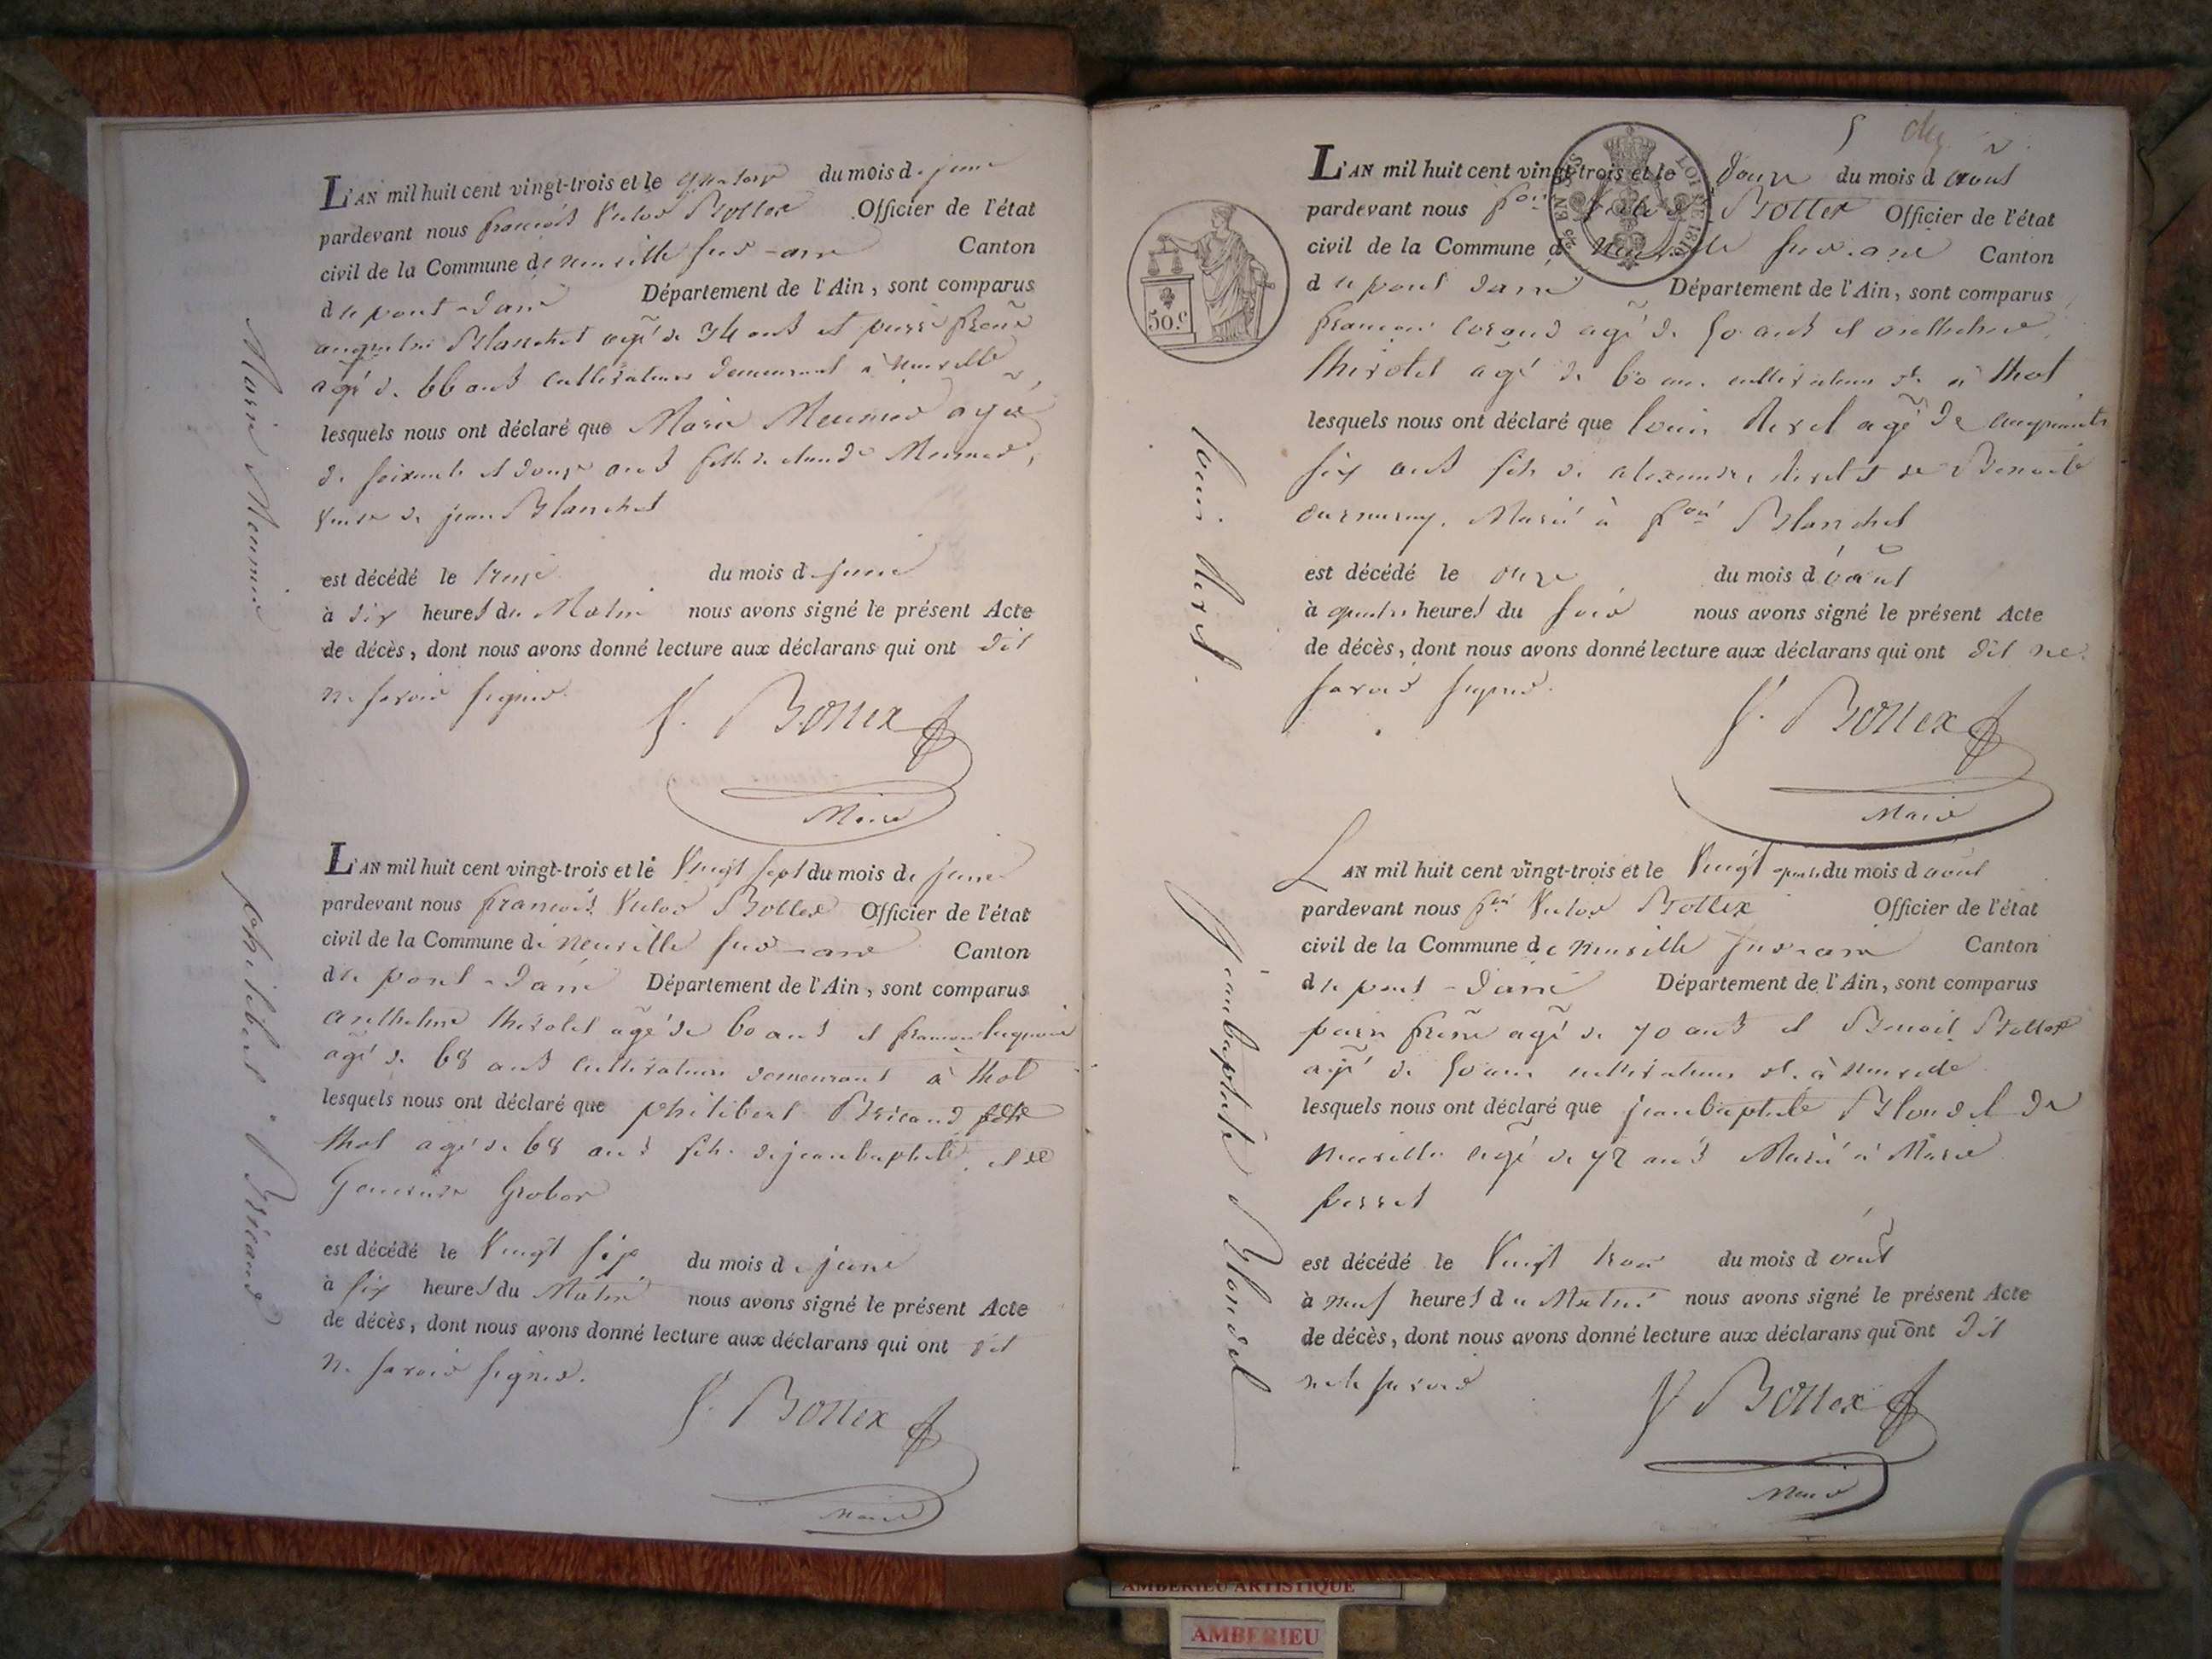 L'AN mil huit cent vingt-trois et le quatorze du mois de juin
pardevant nous françois Victor Bottex Officier de l'état
civil de la Commune de neuville sur-ain Canton
de pont-dain Département de l'Ain, sont comparus
Blanchet agé de 34 ans et
agé de 66 ans cultivateurs demeurant à neuville
lesquels nous ont déclaré que Marie Meunier agée
de soixante et douze ans fille de claude Meunier,
veuve de jean Blanchet
est décédé le treize du mois de juin
à dix heures du Matin nous avons signé le présent Acte
de décès, dont nous avons donné lecture aux déclarans qui ont dit
ne savoir signer.
V. Bottex
Maire
Marie Meunier
L'AN mil huit cent vingt-trois et le Vingt sept du mois de juin
pardevant nous françois Victor Bottex Officier de l'état
civil de la Commune de neuville sur-ain Canton
de pont-dain Département de l'Ain, sont comparus
anthelme thevolet agé de 60 ans et françois
agé de 68 ans cultivateurs demeurant à thol
lesquels nous ont déclaré que philibert Bricand de
thol agé de 68 ans fils de jean baptiste et de
est décédé le Vingt six du mois de juin
à six heures du Matin nous avons signé le présent Acte
de décès, dont nous avons donné lecture aux déclarans qui ont dit
ne savoir signer.
V. Bottex
Maire
philibert Bricand
5
L'AN mil huit cent vingt-trois et le Douze du mois d août
pardevant nous fois Victor Bottex Officier de l'état
civil de la Commune de Neuville sur-ain Canton
de pont dain Département de l'Ain, sont comparus
françois agé de 50 ans et anthelme
thevolet agé de 60 ans cultivateurs à thol
lesquels nous ont déclaré que louis agé de cinquante
six ans fils de alexandre et de Benoite
Marié à foise Blanchet
est décédé le onze du mois d août
à quatre heures du soir nous avons signé le présent Acte
de décès, dont nous avons donné lecture aux déclarans qui ont dit ne
savoir signer.
V. Bottex
Maire
50.c
LOI DE 1816
louis
L'AN mil huit cent vingt-trois et le Vingt quatre du mois d août
pardevant nous fois Victor Bottex Officier de l'état
civil de la Commune de neuville sur-ain Canton
de pont-dain Département de l'Ain, sont comparus
agé de 70 ans et Benoit Bottex
agé de 50 ans cultivateurs à neuville
lesquels nous ont déclaré que jean baptiste Blondel de
neuville agé de 72 ans Marié à Marie
perret
est décédé le Vingt trois du mois d août
à neuf heures du Matin nous avons signé le présent Acte
de décès, dont nous avons donné lecture aux déclarans qui ont dit
ne le savoir
V Bottex
Maire
Jean baptiste Blondel
AMBERIEU ARTISTIQUE
AMBERIEU